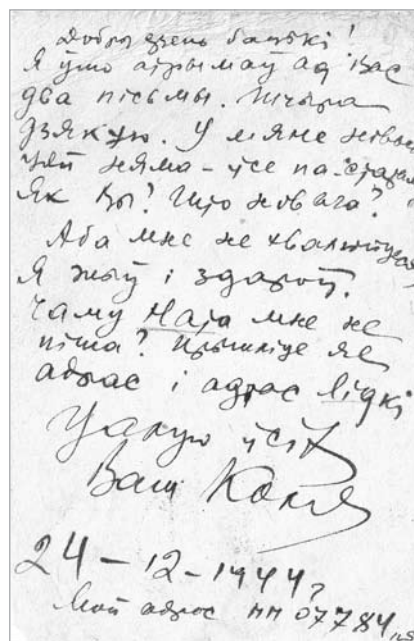 Добры дзень бацькі!
Я ўжо атрымаў ад Вас
два пісьмы. Шчыра
дзякую. У мяне новын
няма - ўсе па-старому
Як Вы? Што новага?
Аба мне не хвалюйцеся
Я жыў і здароў.
Чаму Ната мне не
піша? Прышліце яе
адрас і адрас Лідкі
Цалую ўсіх
Ваш Коля
24-12-1944 г
Мой адрас пп 07784